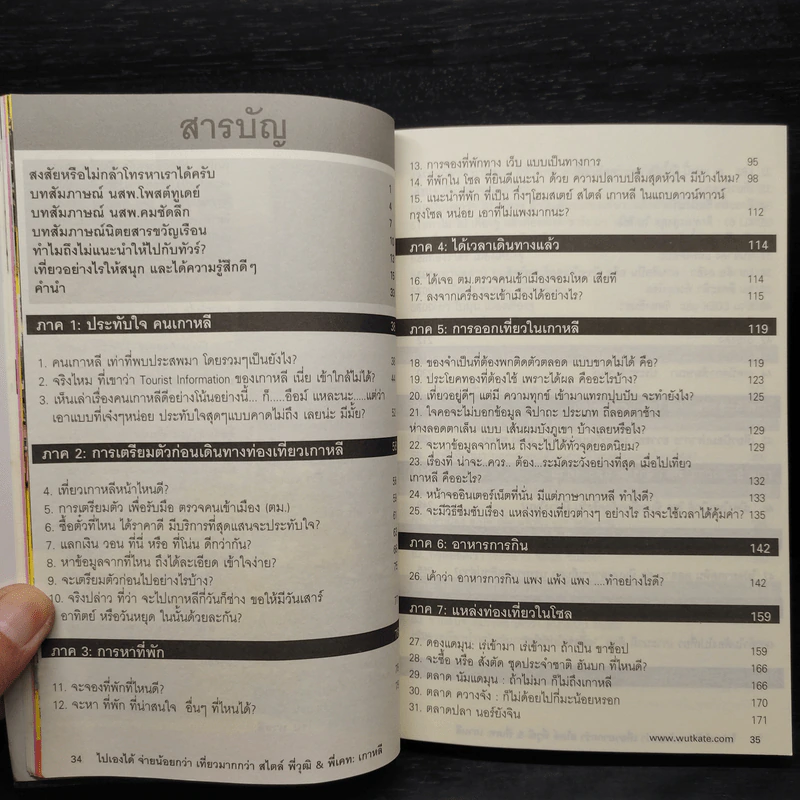 สารบัญ
สงสัยหรือไม่กล้าโทรหาเราได้ครับ
บทสัมภาษณ์ นสพ.โพสต์ทูเดย์ 1
บทสัมภาษณ์ นสพ.คมชัดลึก 4
บทสัมภาษณ์นิตยสารขวัญเรือน 7
ทำไมถึงไม่แนะนำให้ไปกับทัวร์?
เที่ยวอย่างไรให้สนุก และได้ความรู้สึกดีๆ
คำนำ
ภาค 1: ประทับใจ คนเกาหลี
1. คนเกาหลี เท่าที่พบประสพมา โดยรวมๆเป็นยังไง?
2. จริงไหม ที่เขาว่า Tourist Information ของเกาหลี เนี่ย เข้าใกล้ไม่ได้?
3. เห็นเล่าเรื่องคนเกาหลีดีอย่างโน้นอย่างนี้... ก็.....อือม์ แหละนะ.....แต่ว่า
เอาแบบที่เจ๋งๆหน่อย ประทับใจสุดๆแบบคาดไม่ถึง เลยน่ะ มีมั้ย?
ภาค 2: การเตรียมตัวก่อนเดินทางท่องเที่ยวเกาหลี
4. เที่ยวเกาหลีหน้าไหนดี?
5. การเตรียมตัว เพื่อรับมือ ตรวจคนเข้าเมือง (ตม.)
6. ซื้อตั๋วที่ไหน ได้ราคาดี มีบริการที่สุดแสนจะประทับใจ?
7. แลกเงิน วอน ที่นี่ หรือ ที่โน่น ดีกว่ากัน?
8. หาข้อมูลจากที่ไหน ถึงได้ละเอียด เข้าใจง่าย?
9. จะเตรียมตัวก่อนไปอย่างไรบ้าง?
10. จริงปล่าว ที่ว่า จะไปเกาหลีกี่วันก็ช่าง ขอให้มีวันเสาร์
อาทิตย์ หรือวันหยุด ในนั้นด้วยละกัน?
ภาค 3: การหาที่พัก
11. จะจองที่พักที่ไหนดี?
12. จะหา ที่พัก ที่น่าสนใจ อื่นๆ ที่ไหนได้?
34 ไปเองได้ จ่ายน้อยกว่า เที่ยวมากกว่า สไตล์ พี่วุฒิ & พี่เคท: เกาหลี
13. การจองที่พักทาง เว็บ แบบเป็นทางการ 95
14. ที่พักใน โซล ที่ยินดีแนะนำ ด้วย ความปลาบปลื้มสุดหัวใจ มีบ้างไหม? 98
15. แนะนำที่พัก ที่เป็น กึ่งๆโฮมสเตย์ สไตล์ เกาหลี ในแถบดาวน์ทาวน์
กรุงโซล หน่อย เอาที่ไม่แพงมากนะ? 112
ภาค 4: ได้เวลาเดินทางแล้ว 114
16. ได้เจอ ตม.ตรวจคนเข้าเมืองจอมโหด เสียที 114
17. ลงจากเครื่องจะเข้าเมืองได้อย่างไร? 115
ภาค 5: การออกเที่ยวในเกาหลี 119
18. ของจำเป็นที่ต้องพกติดตัวตลอด แบบขาดไม่ได้ คือ? 119
19. ประโยคทองที่ต้องใช้ เพราะได้ผล คืออะไรบ้าง? 123
20. เที่ยวอยู่ดีๆ แต่มี ความทุกข์ เข้ามาแทรกปุบปับ จะทำยังไง? 125
21. ใครอจะไม่บอกข้อมูล จิปาถะ ประเภท ถี่ลอดตาช้าง
ห่างลอดตาเล็น แบบ เส้นผมบังภูเขา บ้างเลยหรือไง? 129
22. จะหาข้อมูลจากไหน ถึงจะไปได้ทั่วจุดยอดนิยม? 129
23. เรื่องที่ น่าจะ..ควร.. ต้อง...ระมัดระวังอย่างที่สุด เมื่อไปเที่ยว
เกาหลี คืออะไร? 132
24. หน้าจออินเตอร์เน็ตที่นั่น มีแต่ภาษาเกาหลี ทำไงดี? 133
25. จะมีวิธีซึมซับเรื่อง แหล่งท่องเที่ยวต่างๆ อย่างไร ถึงจะใช้เวลาได้คุ้มค่า? 135
ภาค 6: อาหารการกิน 142
26. เค้าว่า อาหารการกิน แพง แพ้ง แพง ....ทำอย่างไรดี? 142
ภาค 7: แหล่งท่องเที่ยวในโซล 159
27. ดองแดมุน: เร่เข้ามา เร่เข้ามา ถ้าเป็น ขาช้อป 159
28. จะซื้อ หรือ สั่งตัด ชุดประจำชาติ ฮันบก ที่ไหนดี? 166
29. ตลาด นัมแดมุน : ถ้าไม่มา ก็ไม่ถึงเกาหลี 166
30. ตลาด ควางจัง : ก็ไม่ด้อยไปกี่มะน้อยหรอก 170
31. ตลาดปลา นอร์ยังจิน 171
www.wutkate.com 35